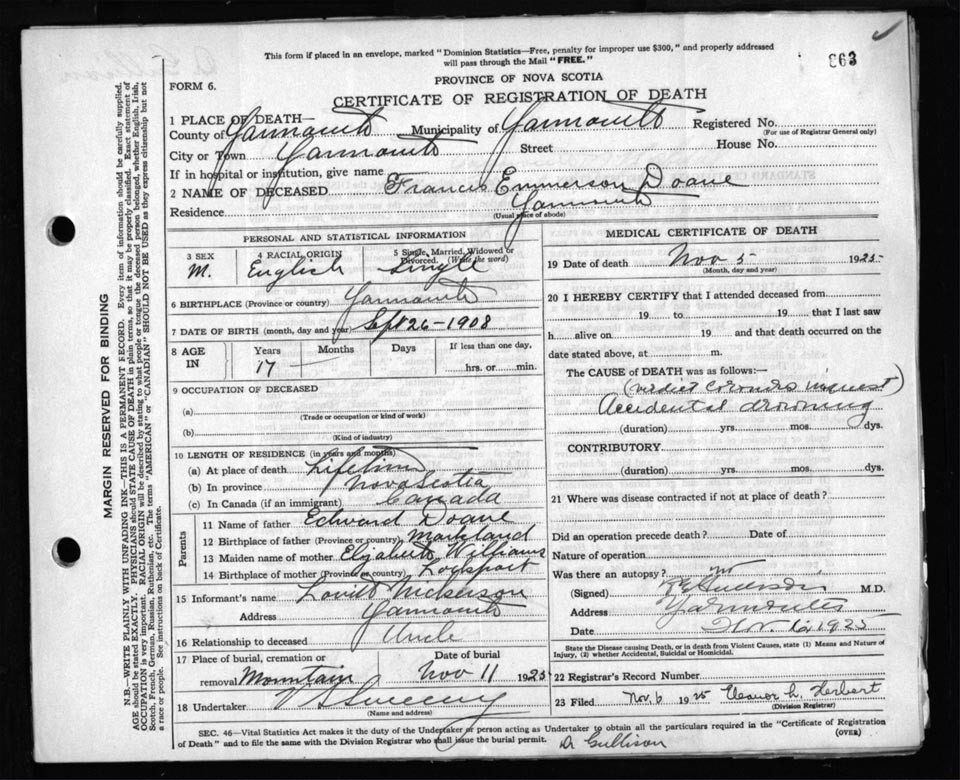 This form if placed in an envelope, marked "Dominion Statistics—Free, penalty for improper use $300," and properly addressed
will pass through the Mail "FREE."
863
PROVINCE OF NOVA SCOTIA
FORM 6.
CERTIFICATE OF REGISTRATION OF DEATH
1 PLACE OF DEATH—
County of Yarmouth Municipality of Yarmouth Registered No.
(For use of Registrar General only)
City or Town Yarmouth Street House No.
If in hospital or institution, give name
2 NAME OF DECEASED Francis Emmerson Doane
Residence Yarmouth
(Usual place of abode)
PERSONAL AND STATISTICAL INFORMATION
3 SEX 4 RACIAL ORIGIN 5 Single, Married, Widowed or Divorced. (Write the word)
M. English Single
6 BIRTHPLACE (Province or country) Yarmouth
7 DATE OF BIRTH (month, day and year) Sept 26-1908
8 AGE IN Years Months Days If less than one day,
17 hrs. or min.
9 OCCUPATION OF DECEASED
(a)
(Trade or occupation or kind of work)
(b)
(Kind of industry)
10 LENGTH OF RESIDENCE (in years and months)
(a) At place of death Lifetime
(b) In province Nova Scotia
(c) In Canada (if an immigrant) Canada
Parents
11 Name of father Edward Doane
12 Birthplace of father (Province or country) Markland
13 Maiden name of mother Elizabeth Williams
14 Birthplace of mother (Province or country) Lockport
15 Informant's name Lovitt Nickerson
Address Yarmouth
16 Relationship to deceased Uncle
17 Place of burial, cremation or removal Mountain
Date of burial Nov 11 1925
18 Undertaker V S Sweeny
(Name and address)
MEDICAL CERTIFICATE OF DEATH
19 Date of death Nov 5 1925
(Month, day and year)
20 I HEREBY CERTIFY that I attended deceased from
19 to 19 that I last saw
h alive on 19 and that death occurred on the
date stated above, at m.
The CAUSE of DEATH was as follows:—
(verdict coroners inquest)
Accidental drowning
(duration) yrs. mos. dys.
CONTRIBUTORY
(duration) yrs. mos. dys.
21 Where was disease contracted if not at place of death?
Did an operation precede death? Date of
Nature of operation
Was there an autopsy? no
(Signed) M.D.
Address Yarmouth
Date Nov. 6, 1925
State the Disease causing Death, or in death from Violent Causes, state (1) Means and Nature of
Injury, (2) whether Accidental, Suicidal or Homicidal.
22 Registrar's Record Number
23 Filed Nov. 6 1925 Eleanor L. Herbert
(Division Registrar)
SEC. 46—Vital Statistics Act makes it the duty of the Undertaker or person acting as Undertaker to obtain all the particulars required in the "Certificate of Registration
of Death" and to file the same with the Division Registrar who shall issue the burial permit.
(OVER)
MARGIN RESERVED FOR BINDING
N.B.—WRITE PLAINLY WITH UNFADING INK—THIS IS A PERMANENT RECORD. Every item of information should be carefully supplied.
AGE should be stated EXACTLY. PHYSICIANS should STATE CAUSE OF DEATH in plain terms, so that it may be properly classified. Exact statement of
OCCUPATION is very important. RACIAL ORIGIN will be described by stating to what people or tongue the deceased person belonged, whether English, Irish,
Scotch, French, German, Russian, Ruthenian, etc. The terms "AMERICAN" or "CANADIAN" SHOULD NOT BE USED as they express citizenship but not
a race or people. See instructions on back of Certificate.